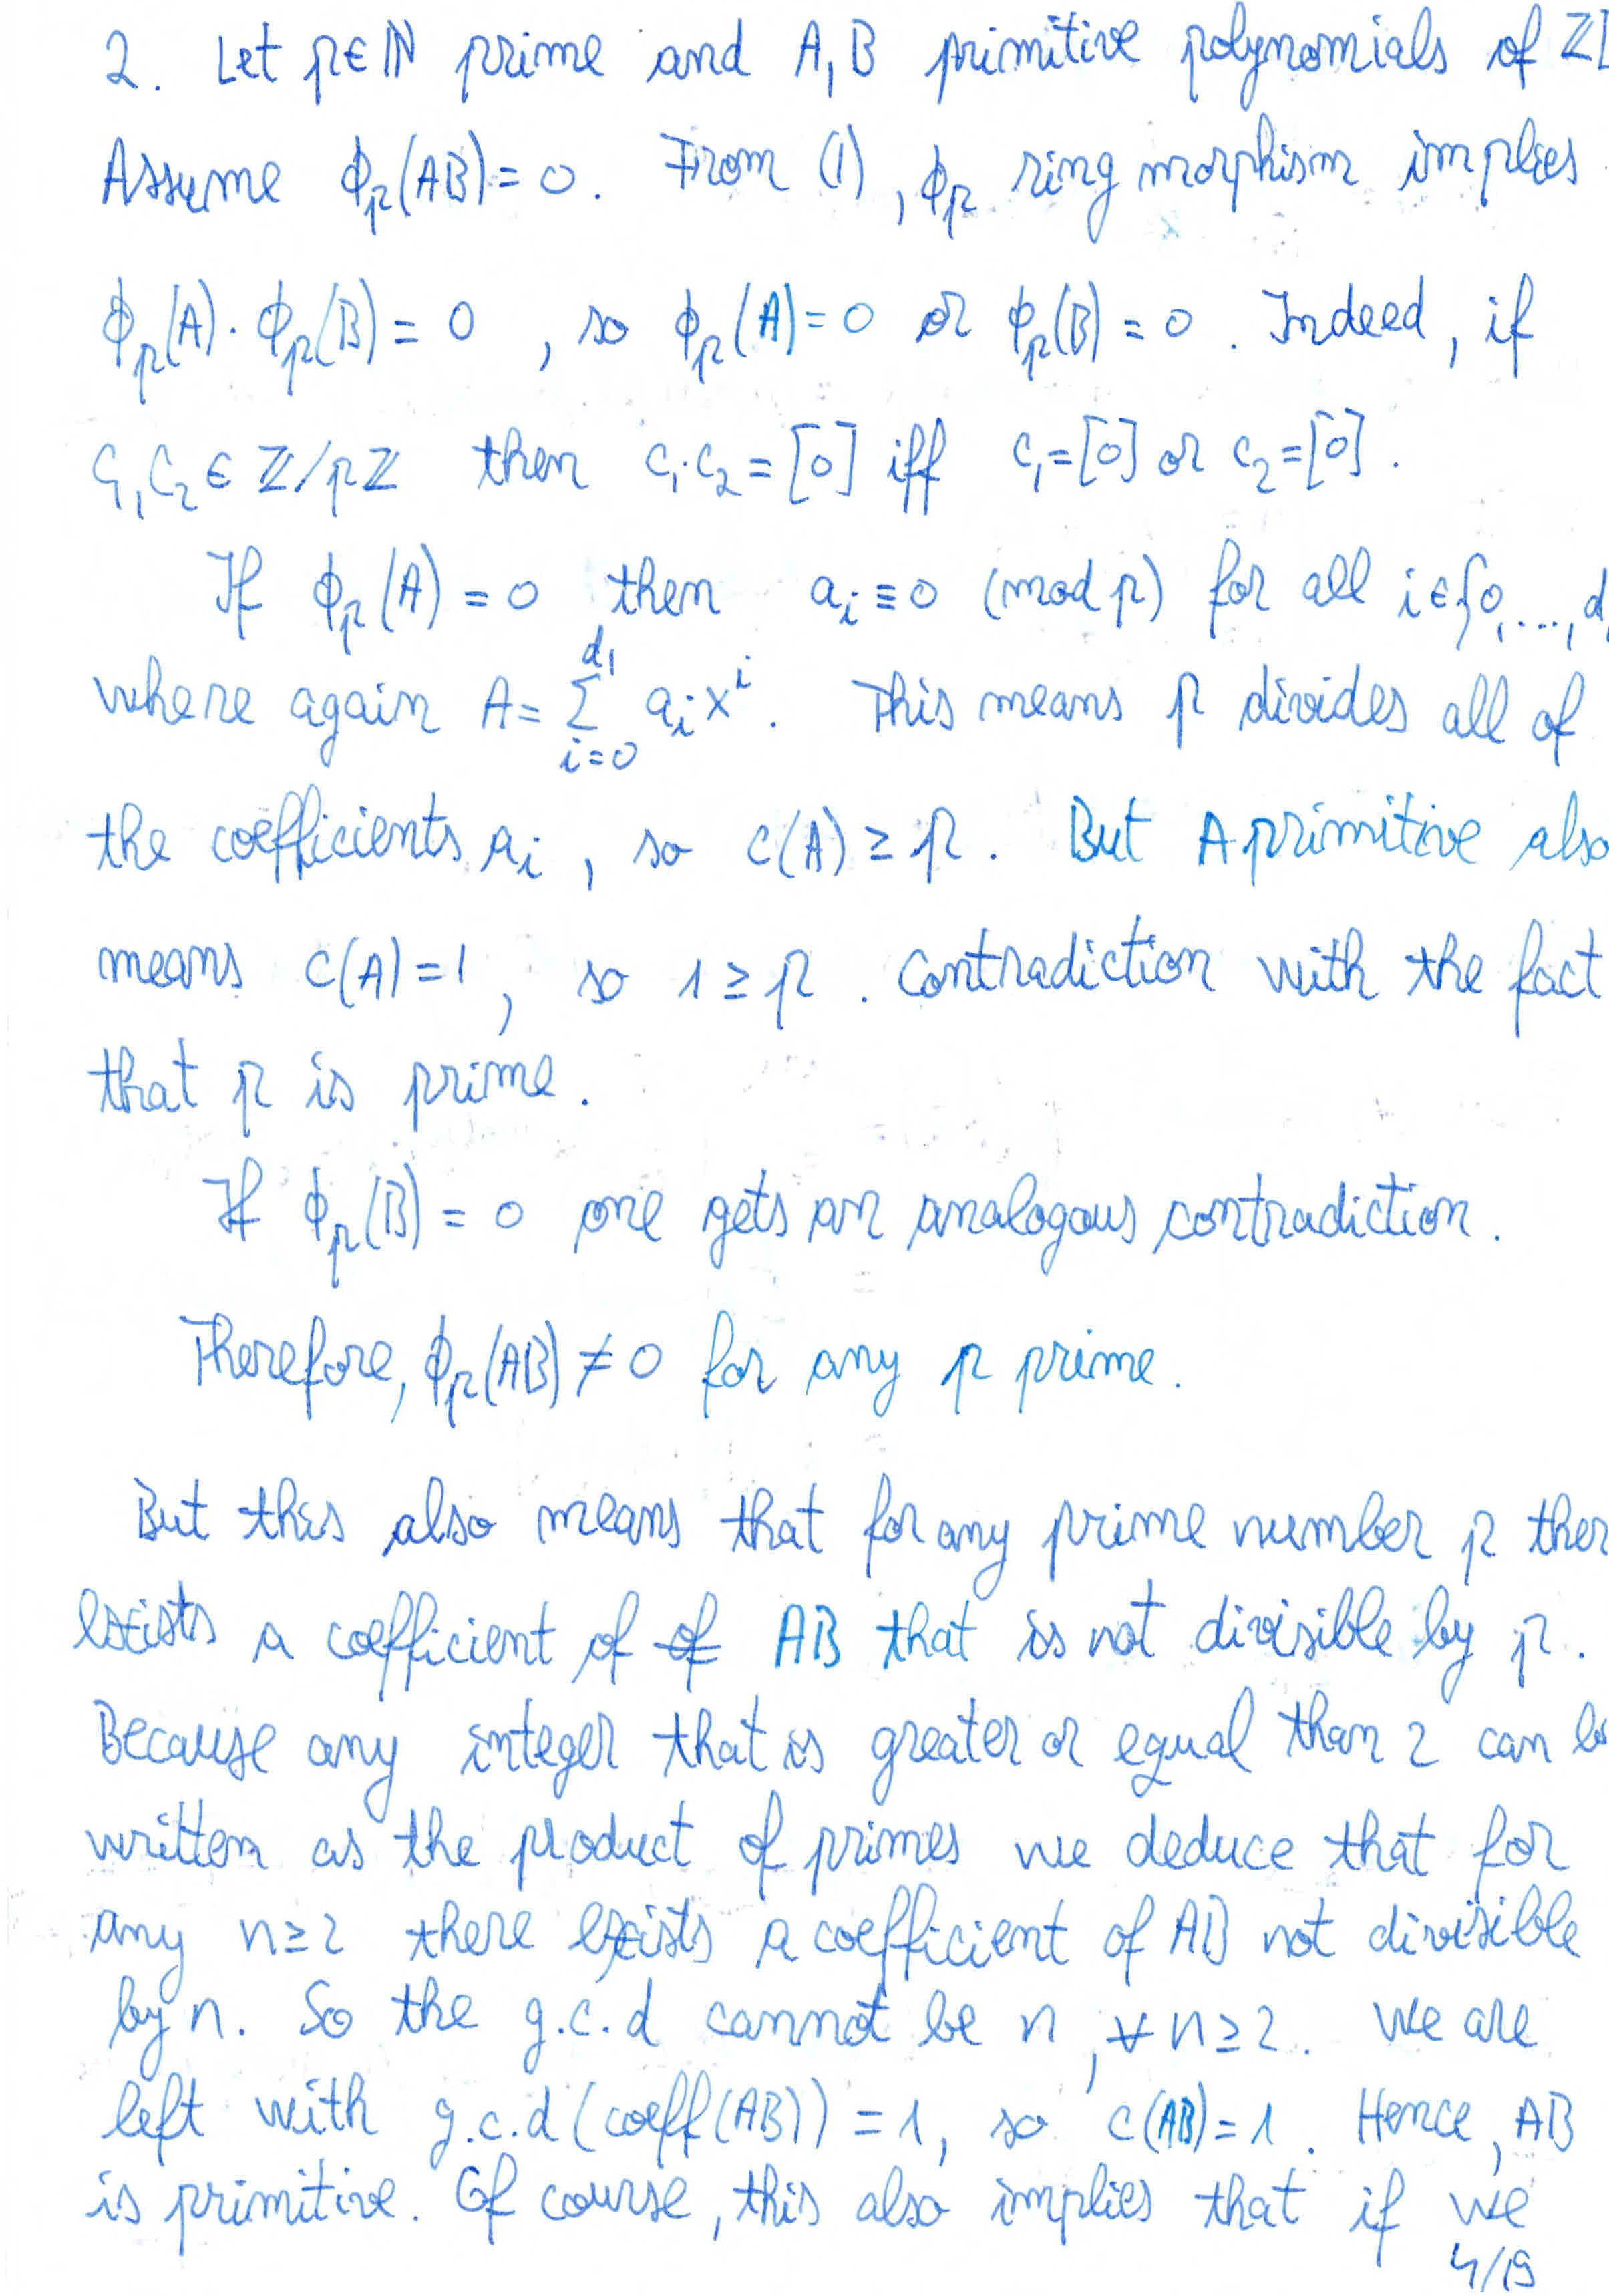 2. Let p∈ℕ prime and A, B primitive polynomials of ℤ[
Assume ϕₚ(AB)=0. From (1), ϕₚ ring morphism implies
ϕₚ(A)·ϕₚ(B)=0, so ϕₚ(A)=0 or ϕₚ(B)=0. Indeed, if
c₁,c₂∈ℤ/pℤ then c₁·c₂=[0] iff c₁=[0] or c₂=[0].
If ϕₚ(A)=0 then aᵢ≡0 (mod p) for all i∈{0,...,d₁
where again A=∑_{i=0}^{d₁} aᵢxⁱ. This means p divides all of
the coefficients aᵢ, so c(A)≥p. But A primitive also
means c(A)=1, so 1≥p. Contradiction with the fact
that p is prime.
If ϕₚ(B)=0 one gets an analogous contradiction.
Therefore, ϕₚ(AB)≠0 for any p prime.
But this also means that for any prime number p ther
exists a coefficient of of AB that is not divisible by p.
Because any integer that is greater or equal than 2 can b
written as the product of primes we deduce that for
any n≥2 there exists a coefficient of AB not divisible
by n. So the g.c.d cannot be n, ∀n≥2. We are
left with g.c.d(coeff(AB))=1, so c(AB)=1. Hence, AB
is primitive. Of course, this also implies that if we
4/19